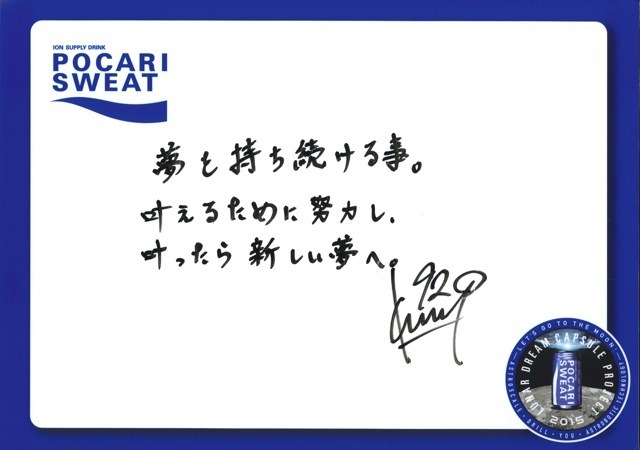 ION SUPPLY DRINK
POCARI
SWEAT
夢を持ち続ける事。
叶えるために努力し、
叶ったら新しい夢へ。
920
LET'S GO TO THE MOON!
LUNAR DREAM CAPSULE PROJECT
POCARI
SWEAT
2015
ASTROSCALE · DRILL · YOU · ASTROBOTIC TECHNOLOGY